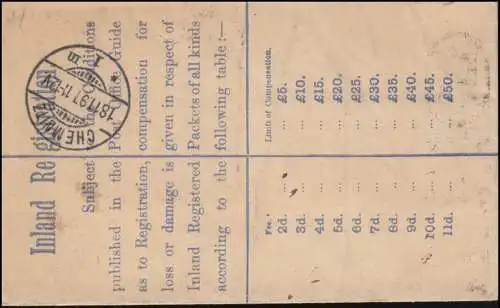 Inland Registration
Subject Conditions
published in the Post Office Guide
as to Registration, compensation for
loss or damage is given in respect of
Inland Registered Packets of all kinds
according to the following table :—
Fee. Limits of Compensation.
2d. ... ... £5.
3d. ... ... £10.
4d. ... ... £15.
5d. ... ... £20.
6d. ... ... £25.
7d. ... ... £30.
8d. ... ... £35.
9d. ... ... £40.
10d. ... ... £45.
11d. ... ... £50.
CHEMNITZ